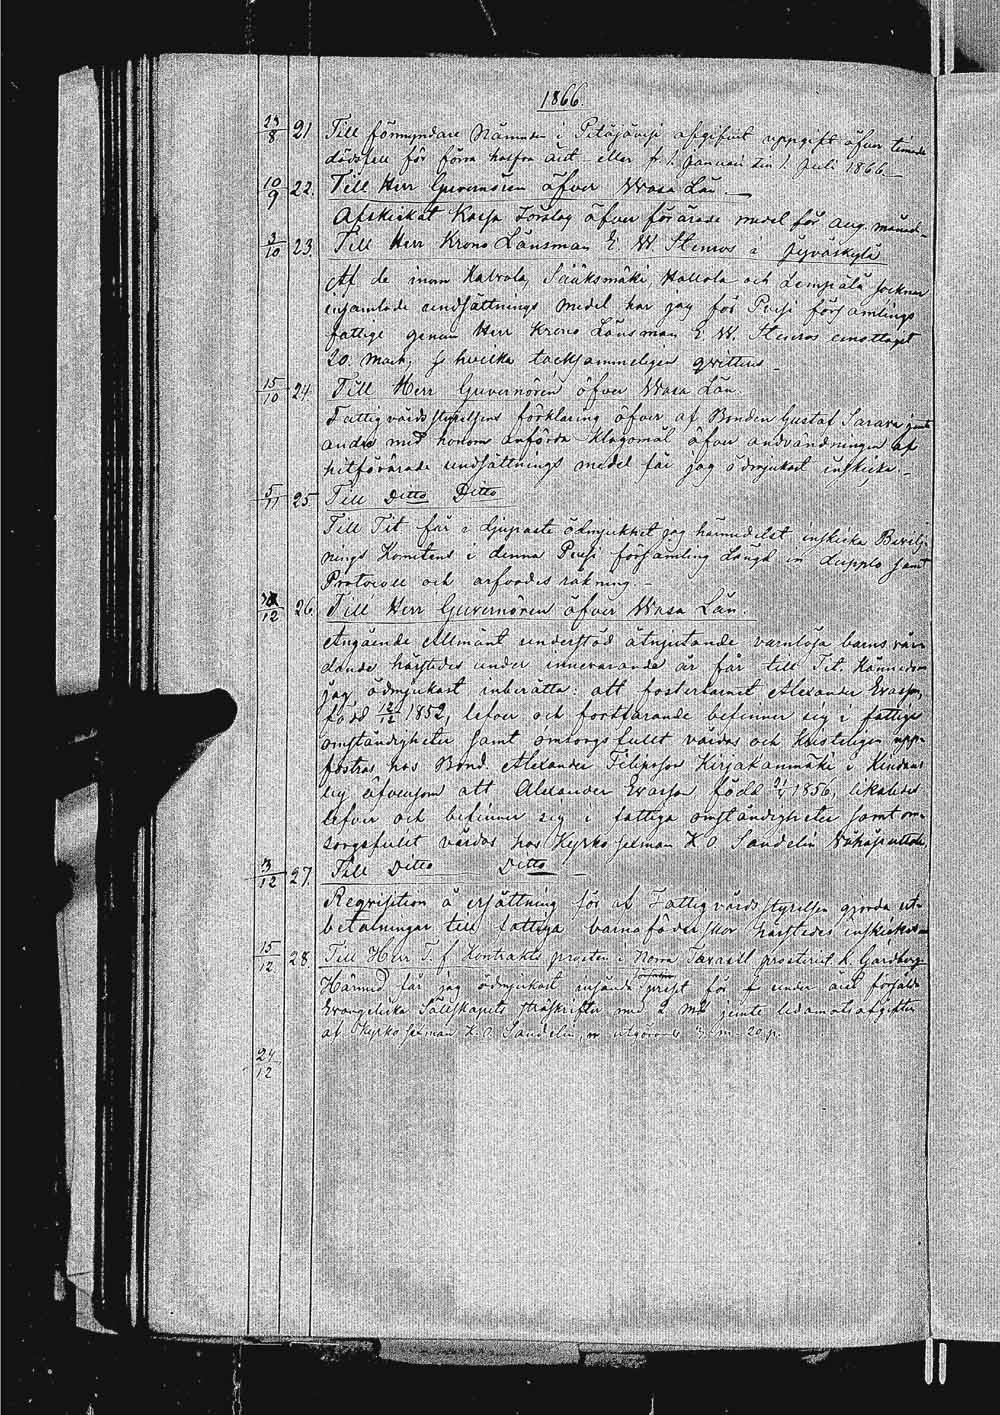 1866.
23/8 21. Till förmyndare Nämnden i Pitäjävesi afgifvit uppgift öfver timade
dödsfall för förra halfva året eller fr 1. Januari till 1 Juli 1866.—
10/9 22. Till Herr Guvernören öfver Wasa Län.—
Afskickat Kassa Förslag öfver förärade medel för aug. månad.
3/10 23. Till Herr Krono Länsman E W Stenros i Jyväskylä
Af de inom Kalvola, Sääksmäki, Hattola och Lempälä socknar
insamlade undsättnings medel har jag för Pvesi församlings
fattige genom Herr Krono Länsman E. W. Stenros emottagit
20. mark, hvilka tacksammeligen qvitteras—
15/10 24. Till Herr Guvernören öfver Wasa Län.
Fattigvårdsstyrelsens förklaring öfver af Bonden Gustaf Sarava jemte
andra med honom anförda klagomål öfver användningen af
hitförärade undsättnings medel får jag ödmjukast inskicka.—
5/11 25. Till Ditto Ditto
Till Tit. får i djupaste ödmjukhet jag härmedelst inskicka Bevilj-
nings Komitens i denna Pvesi församling Längd in dupplo samt
Protocoll och arfvodes räkning.—
/12 26. Till Herr Guvernören öfver Wasa Län.
Angående Allmänt understöd åtnjutande värnlösa barns vår-
dande härstedes under innevarande år får till Tit. kännedom
jag ödmjukast inberätta: att fosterbarnet Alexander Evasson,
född 12/12 1852, lefver och fortfarande befinner sig i fattiga
omständigheter samt omsorgsfullt vårdas och kristeligen upp-
fostras hos Bond. Alexander Filipsson Kirjakanmäki i Kindaus
by äfvensom att Alexander Evasson född 1856, likaledes
lefver och befinner sig i fattiga omständigheter samt om-
sorgsfullt vårdas hos Kyrko sexman K. O. Sandelin
13/12 27. Till Ditto Ditto—
Reqvisition å ersättning för af Fattigvårdsstyrelsen gjorda ut-
betalningar till fattiga barnaföderskor härstedes inskickas—
15/12 28. Till Herr T. f Kontrakts prosten i Norra Tavastl prosteriet K. Gardberg
Härmed får jag ödmjukast insända för under året försålda
Evangeliska Sällskapets ströskrifter med 2 mk jemte ledamotsafgifter
af Kyrko sexman K. O. Sandelin, utgörande 3 m. 20 p.
24/12